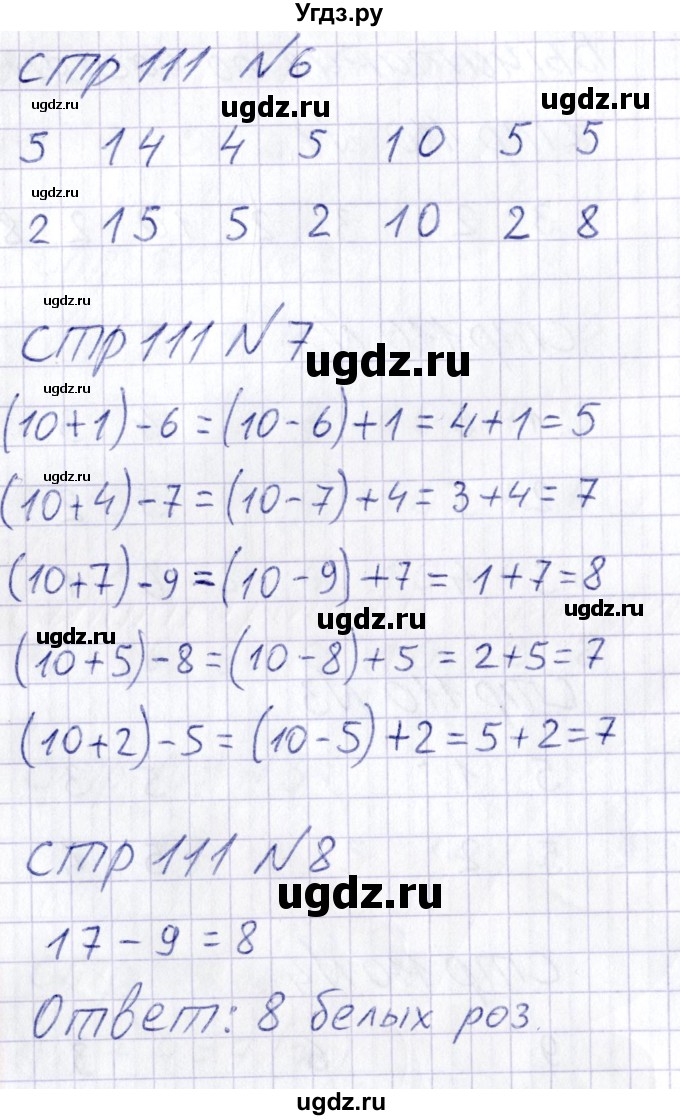 Угдз.ру
стр 111 №6
ugdz.ru ugdz.ru ugdz.ru
5 14 4 5 10 5 5
ugdz.ru
2 15 5 2 10 2 8
ugdz.ru
стр 111 №7
ugdz.ru
(10+1)-6=(10-6)+1=4+1=5
ugdz.ru
(10+4)-7=(10-7)+4=3+4=7
(10+7)-9=(10-9)+7=1+7=8
ugdz.ru ugdz.ru ugdz.ru
(10+5)-8=(10-8)+5=2+5=7
(10+2)-5=(10-5)+2=5+2=7
стр 111 №8
ugdz.ru
17-9=8
Ответ: 8 белых роз.
Угдз.ру